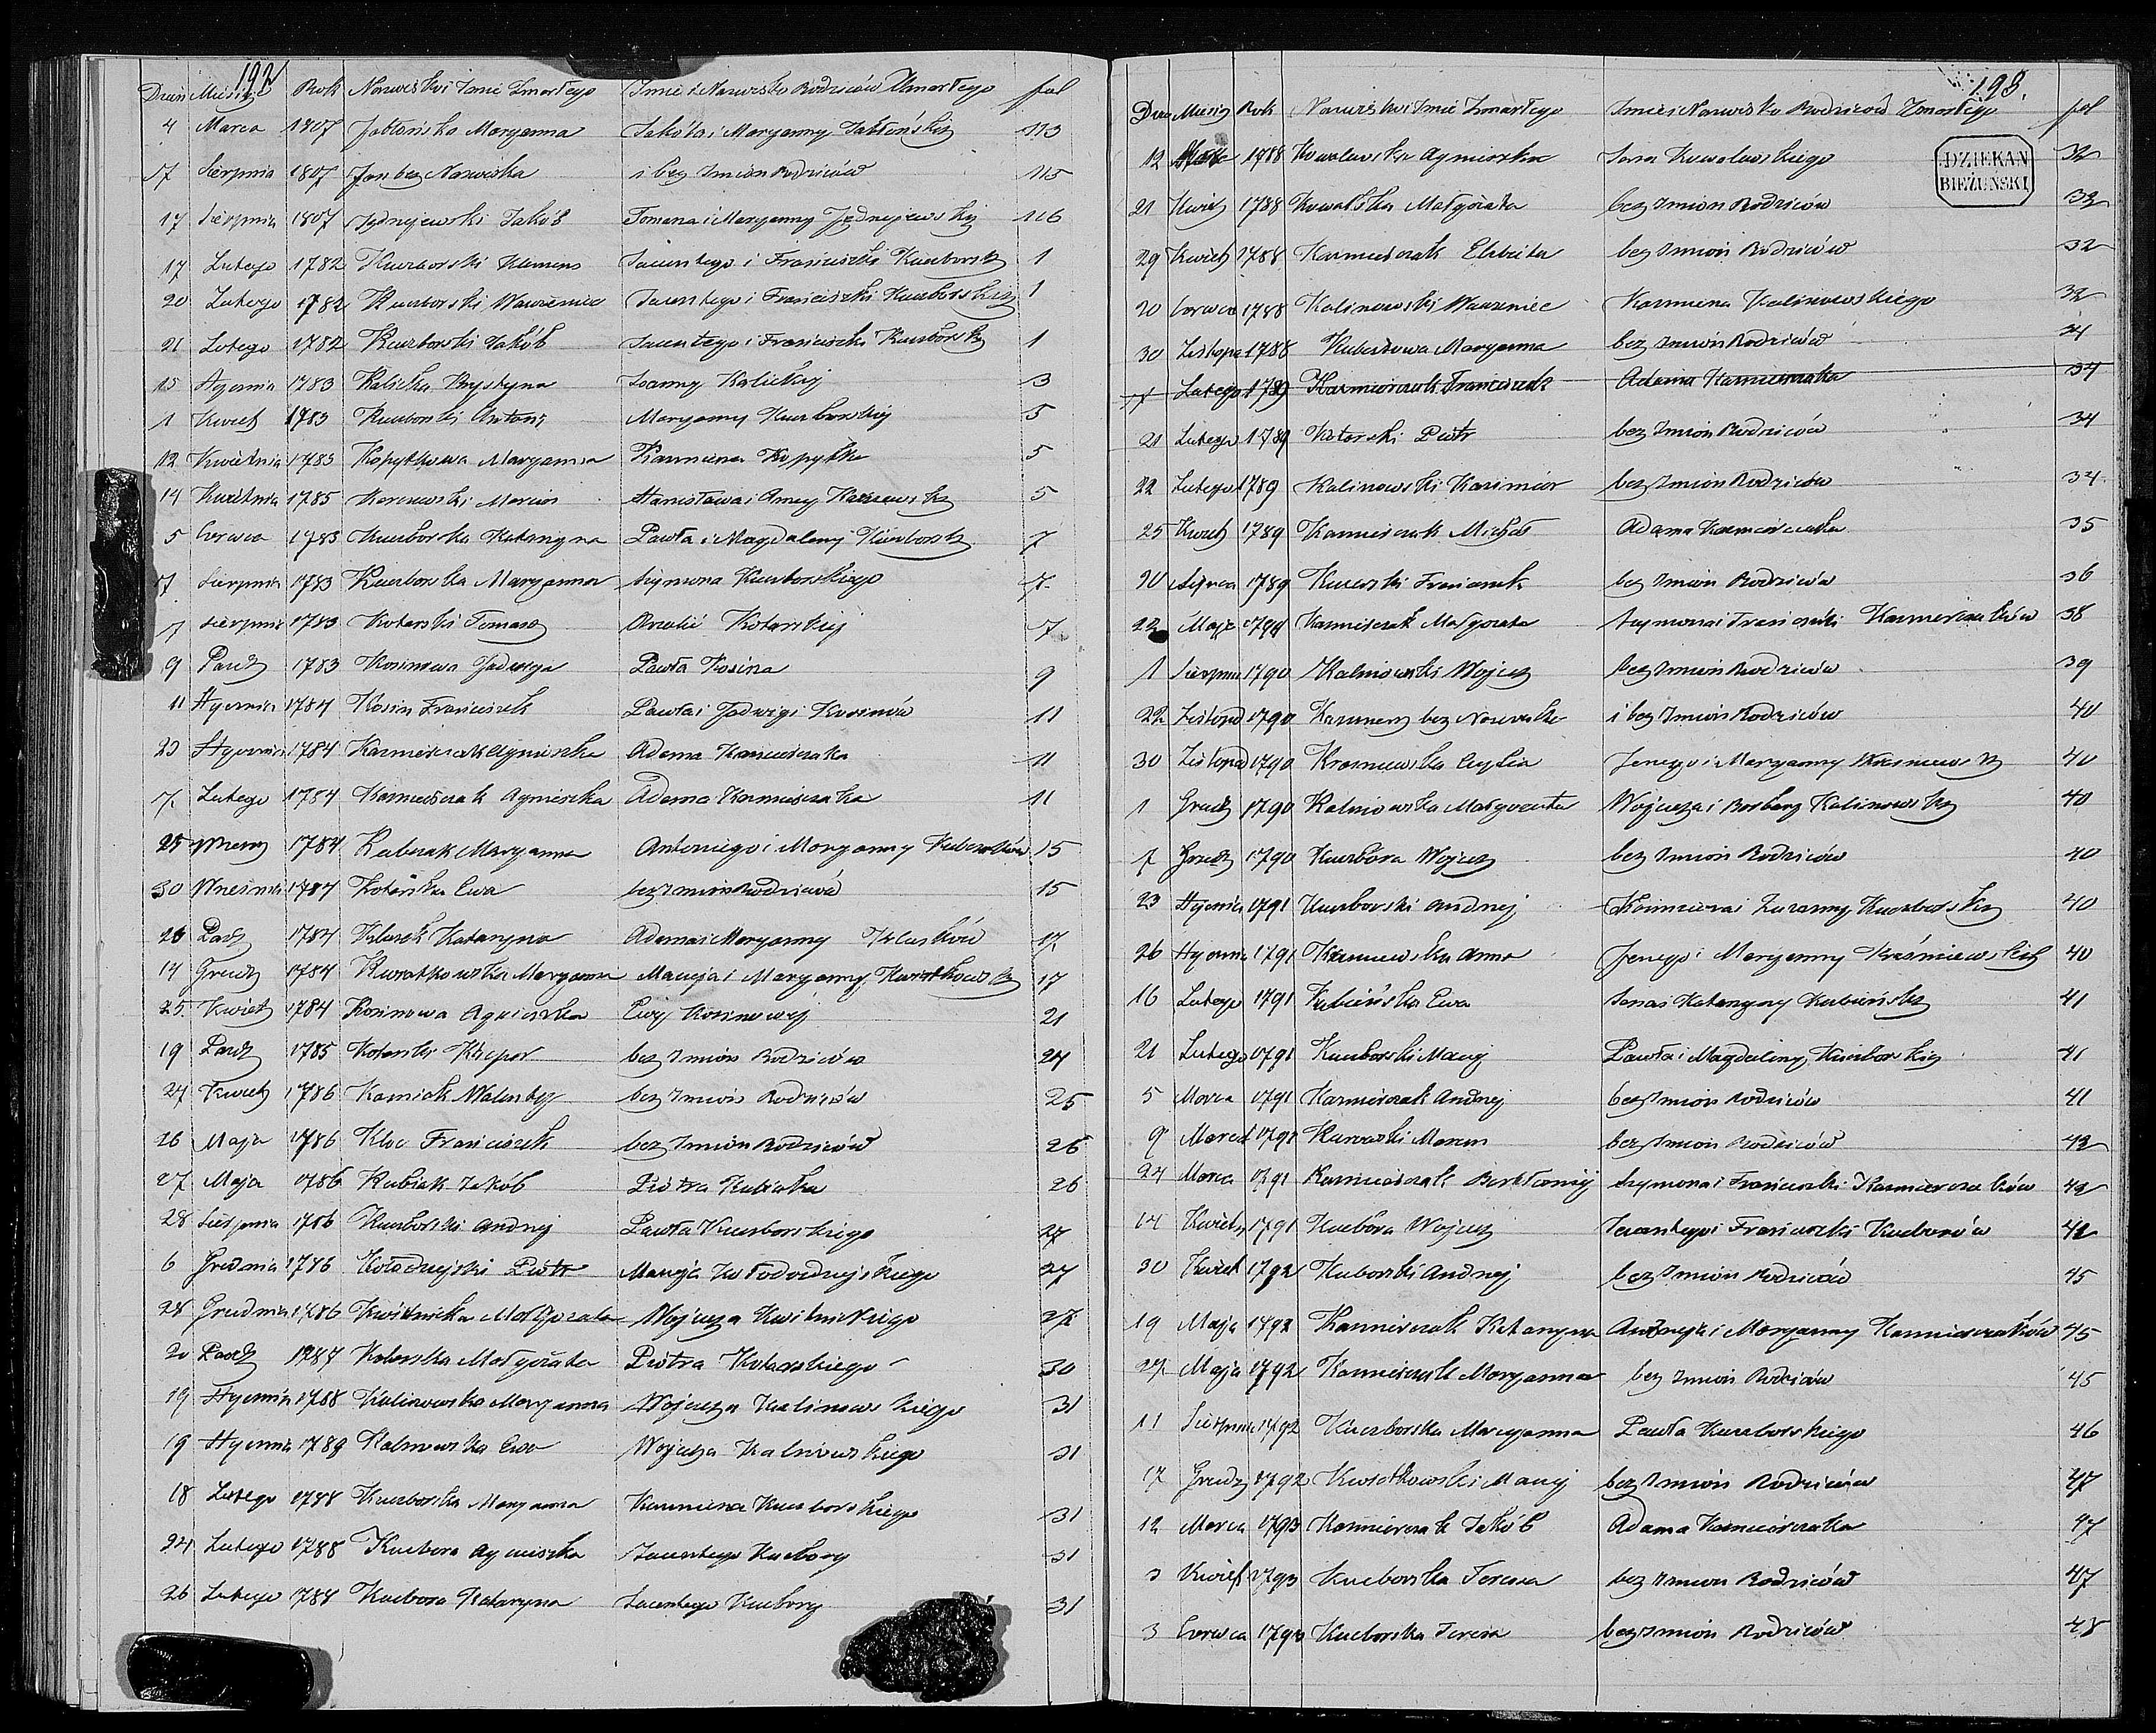 192
Dzień Miesiąc Rok Nazwisko i Imie Zmarłego Imie i Nazwisko Rodziców Zmarłego fol
4 Marca 1807 Jabłońska Maryanna Jakóba i Maryanny Jabłońskich 113
7 Sierpnia 1807 Jan bez Nazwiska i bez Imion Rodziców 115
17 Sierpnia 1807 Jakób Tomasza i Maryanny 116
17 Lutego 1782 Kuczborski Klemens Jacentego i Franciszki 1
20 Lutego 1782 Kuczborski Wawrzeniec Jacentego i Franciszki Kuczborskich 1
21 Lutego 1782 Kuczborski Jakób Jacentego i Franciszki 1
15 Stycznia 1783 Kalicka Krystyna Joanny Kalickiej 3
1 Kwiet 1783 Kuczborski Antoni Maryanny Kuczborskiej 5
12 Kwietnia 1783 Kopytkowa Maryanna Kopytka 5
14 Kwietnia Marcin Stanisława i Anny 5
5 Czerwca 1783 Kuczborska Katarzyna Pawła i Magdaleny 7
7 Sierpnia 1783 Kuczborska Maryanna Szymona Kuczborskiego 7
7 Sierpnia 1783 Kotarski Tomasz Kotarskiej 7
9 Paźdz 1783 Kosinowa Jadwiga Pawła Kosina 9
11 Stycznia 1784 Kosin Franciszek Pawła i Jadwigi Kosinów 11
23 Stycznia 1784 Kazmierczak Agnieszka Adama Kazmierczaka 11
7 Lutego 1784 Kazmierczak Agnieszka Adama Kazmierczaka 11
25 1784 Kubczak Maryanna Antoniego i Maryanny 15
30 Wrześnie 1784 Kotarska Ewa bez Imion Rodziców 15
Paźdz 1784 Klusek Katarzyna Adama i Maryanny Klusków 17
14 Grudz 1784 Kwiatkowska Maryanna Macieja i Maryanny 17
25 Kwiet 1784 Kosinowa Agnieszka Ewy Kosinowej 21
19 Paźdz 1785 Kotarski bez Imion Rodziców 24
24 Kwiet 1786 Walenty bez Imion Rodziców 25
26 Maja 1786 Kloc Franciszek bez Imion Rodziców 26
27 Maja 1786 Kubiak Jakób Piotra Kubiaka 26
28 Sierpnia 1786 Kuczborski Andrzej Pawła Kuczborskiego 27
6 Grudnia 1786 Kołodziejski Piotr Macieja 27
28 Grudnia 1786 Kwitnicka Małgorzata Wojciecha Kwitnickiego 27
20 Paźdz 1787 Kotarska Małgorzata Piotra Kotarskiego 30
19 Stycznia 1788 Kalinowska Maryanna Wojciecha Kalinowskiego 31
19 Stycznia Kalinowska Ewa Wojciecha Kalinowskiego 31
18 Lutego 1788 Kuczborska Maryanna Kazmierza Kuczborskiego 31
24 Lutego 1788 Kucbora Agnieszka Jacentego Kucbory 31
26 Lutego 1788 Kucbora Katarzyna Jacentego Kucbory 31
193.
Dzień Miesiąc Rok Nazwisko i Imie Zmarłego Imie i Nazwisko Rodziców Zmarłego fol
DZIEKAN
BIEŻUŃSKI
12 1788 Kowalewska Agnieszka Jana Kowalewskiego 32
21 Kwiet 1788 Kowalska Małgorzata bez Imion Rodziców 32
29 Kwiet 1788 Kazmierczak Elżbieta bez Imion Rodziców 32
20 Czerwca 1788 Kalinowski Wawrzeniec Kazmierza Kalinowskiego 32
30 Listopa 1788 Maryanna bez Imion Rodziców
Lutego 1789 Kazmierczak Franciszek Adama Kazmierczaka 34
21 Lutego 1789 Piotr bez Imion Rodziców 34
22 Lutego 1789 Kalinowski Kazimier bez Imion Rodziców 34
25 Kwiet 1789 Kazmierczak Michał Adama Kazmierczaka 35
20 1789 Franciszek bez Imion Rodziców 36
22 Maja Kazmierczak Małgorzata Szymona i Franciszki Kazmierczaków 38
1 Sierpnia 1790 Kalinowski Wojciech bez Imion Rodziców 39
22 Listopad 1790 Kazmierz bez Nazwiska i bez Imion Rodziców 40
30 Listopad 1790 Krasniewska Cecylia Jerzego i Maryanny 40
1 Grudz 1790 Kalinowska Małgorzata Wojciecha i Barbary Kalinowskich 40
7 Grudz 1790 Kuczbora Wojciech bez Imion Rodziców 40
23 Stycznia 1791 Kuczborski Andrzej Kazimierza i Zuzanny 40
26 Stycznia 1791 Anna Jerzego i Maryanny Kraśniewskich 40
16 Lutego 1791 Kubińska Ewa Jana i Katarzyny Kubińskich 41
21 Lutego 1791 Kuczborski Maciej Pawła i Magdaleny Kuczborskich 41
5 Marca 1791 Kazmierczak Andrzej bez Imion Rodziców 41
9 Marca 1791 Marcin bez Imion Rodziców 42
24 Marca 1791 Kazmierczak Bartłomiej Szymona i Franciszki Kazmierczaków 42
14 Kwiet 1791 Kucbora Wojciech Jacentego i Franciszki Kucborów 42
30 Kwiet 1792 Kuborski Andrzej bez Imion Rodziców 45
19 Maja 1792 Kazmierczak Katarzyna Andrzeja i Maryanny Kazmierczaków 45
27 Maja 1792 Kazmierczak Maryanna bez Imion Rodziców 45
11 Sierpnia 1792 Kuczborska Maryanna Pawła Kuczborskiego 46
17 Grudz 1792 Kwiatkowski Maciej bez Imion Rodziców 47
12 Marca 1793 Kazmierczak Jakób Adama Kazmierczaka 47
3 Kwiet 1793 Kucborska Teresa bez Imion Rodziców 47
3 Czerwca 1793 Kucborska Teresa bez Imion Rodziców 48